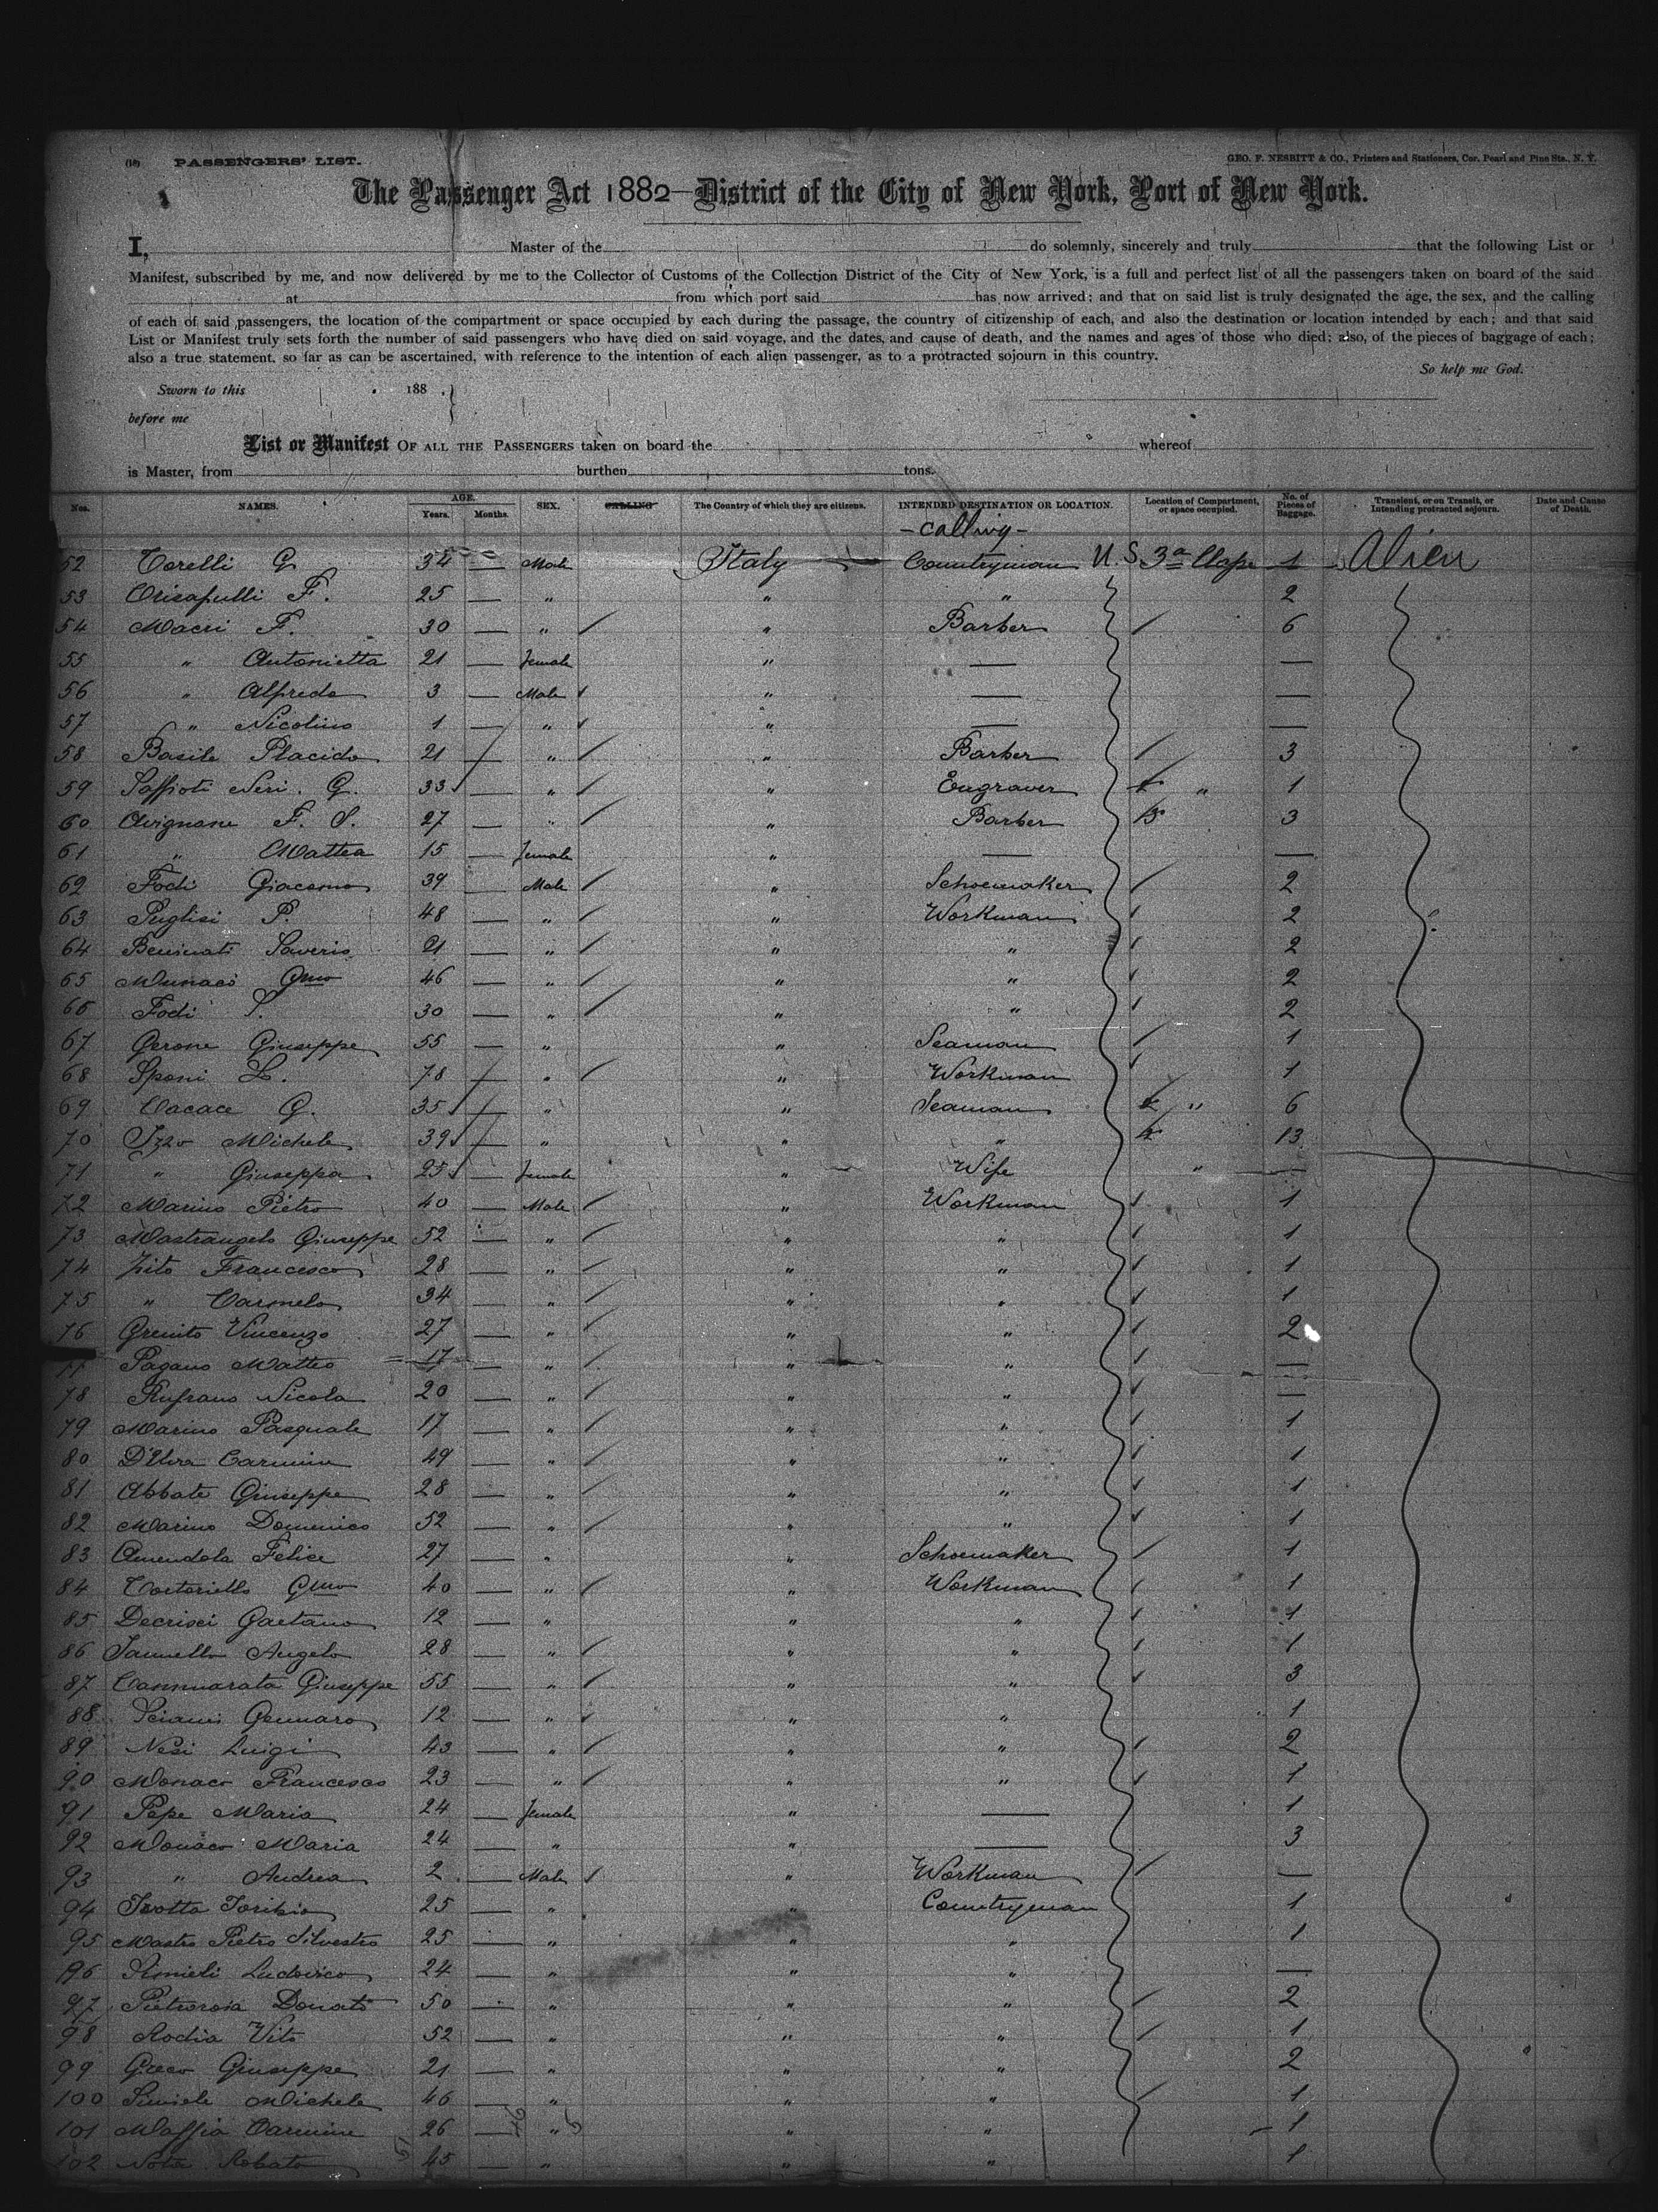 (10) PASSENGERS' LIST. GEO. F. NESBITT & CO., Printers and Stationers, Cor. Pearl and Pine Sts., N. Y.
The Passenger Act 1882—District of the City of New York, Port of New York.
I, Master of the do solemnly, sincerely and truly that the following List or
Manifest, subscribed by me, and now delivered by me to the Collector of Customs of the Collection District of the City of New York, is a full and perfect list of all the passengers taken on board of the said
at from which port said has now arrived; and that on said list is truly designated the age, the sex, and the calling
of each of said passengers, the location of the compartment or space occupied by each during the passage, the country of citizenship of each, and also the destination or location intended by each; and that said
List or Manifest truly sets forth the number of said passengers who have died on said voyage, and the dates, and cause of death, and the names and ages of those who died; also, of the pieces of baggage of each;
also a true statement, so far as can be ascertained, with reference to the intention of each alien passenger, as to a protracted sojourn in this country.
So help me God.
Sworn to this 188 .
before me
List or Manifest OF ALL THE PASSENGERS taken on board the whereof
is Master, from burthen tons.
Nos. NAMES. AGE. Years. Months. SEX. CALLING The Country of which they are citizens. INTENDED DESTINATION OR LOCATION. Location of Compartment, or space occupied. No. of Pieces of Baggage. Transient, or on Transit, or Intending protracted sojourn. Date and Cause of Death.
- calling -
52 Torelli G. 34 — Male Italy Countryman U.S. 3a Classe 1 Alien
53 Crisafulli F. 25 — " " " 2
54 Macri F. 30 — " " Barber 6
55 " Antonietta 21 — Female " — —
56 " Alfredo 3 — Male " — —
57 " Nicolino 1 — " " — —
58 Basile Placido 21 — " " Barber 3
59 Saffioti Neri. G. 33 — " " Engraver " 1
60 Avignone F. S. 27 — " " Barber 3
61 " Mattea 15 — Female " — —
62 Foti Giacomo 39 — Male " Schoemaker 2
63 Puglisi P. 48 — " " Workman 2
64 Beninati Saverio 21 — " " " 2
65 Munaco Gmo 46 — " " " 2
66 Fodi S. 30 — " " " 2
67 Gerone Giuseppe 55 — " " Seaman 1
68 Sponi L. 78 — " " Workman 1
69 Cacace G. 35 — " " Seaman " 6
70 Izzo Michele 39 — " " " 13
71 " Giuseppa 25 — Female " Wife " —
72 Marino Pietro 40 — Male " Workman 1
73 Mastrangelo Giuseppe 52 — " " " 1
74 Zito Francesco 28 — " " " 1
75 " Carmelo 34 — " " " 1
76 Grenito Vincenzo 27 — " " " 2
77 Pagano Matteo 17 — " " " —
78 Rufrano Nicola 20 — " " " —
79 Marino Pasquale 17 — " " " 1
80 Carmine 49 — " " " 1
81 Abbate Giuseppe 28 — " " " 1
82 Marino Domenico 52 — " " " 1
83 Amendola Felice 27 — " " Schoemaker 1
84 Tortoriello Gmo 40 — " " Workman 1
85 Decrisci Gaetano 12 — " " " 1
86 Iannello Angelo 28 — " " " 1
87 Cammarata Giuseppe 55 — " " " 3
88 Gennaro 12 — " " " 1
89 Nesi Luigi 43 — " " " 2
90 Monaco Francesco 23 — " " " 1
91 Pepe Maria 24 — Female " — 1
92 Monaco Maria 24 — " " — 3
93 " Andrea 2 — Male " Workman —
94 Trotta Toribio 25 — " " Countryman 1
95 Mastro Pietro Silvestro 25 — " " " 1
96 Ludovico 24 — " " " —
97 Pietroroia Donato 50 — " " " 2
98 Rodia Vito 52 — " " " 1
99 Greco Giuseppe 21 — " " " 2
100 Simiele Michele 46 — " " " 1
101 Maffia Carmine 26 — " " " 1
102 45 — " " " 1